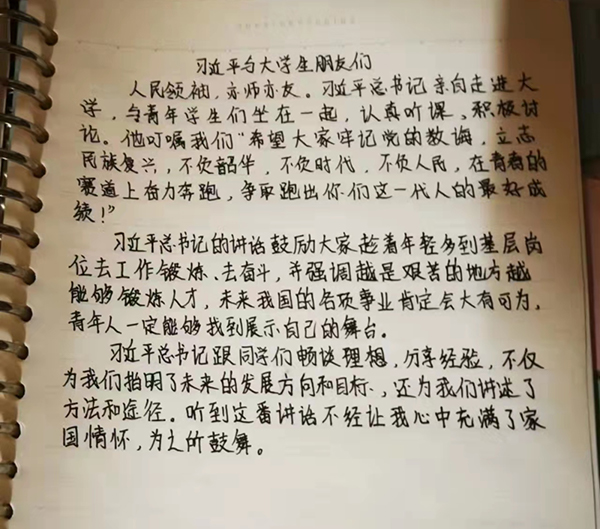 习近平与大学生朋友们
人民领袖，亦师亦友。习近平总书记亲自走进大
学，与青年学生们坐在一起，认真听课、积极讨
论。他叮嘱我们“希望大家牢记党的教诲，立志
民族复兴，不负韶华，不负时代，不负人民，在青春的
赛道上奋力奔跑，争取跑出你们这一代人的最好成
绩！”
习近平总书记的讲话鼓励大家趁着年轻多到基层岗
位去工作锻炼、去奋斗，并强调越是艰苦的地方越
能够锻炼人才，未来我国的各项事业肯定会大有可为，
青年人一定能够找到展示自己的舞台。
习近平总书记跟同学们畅谈理想，分享经验，不仅
为我们指明了未来的发展方向和目标，还为我们讲述了
方法和途径。听到这番讲话不经让我心中充满了家
国情怀，为之所鼓舞。